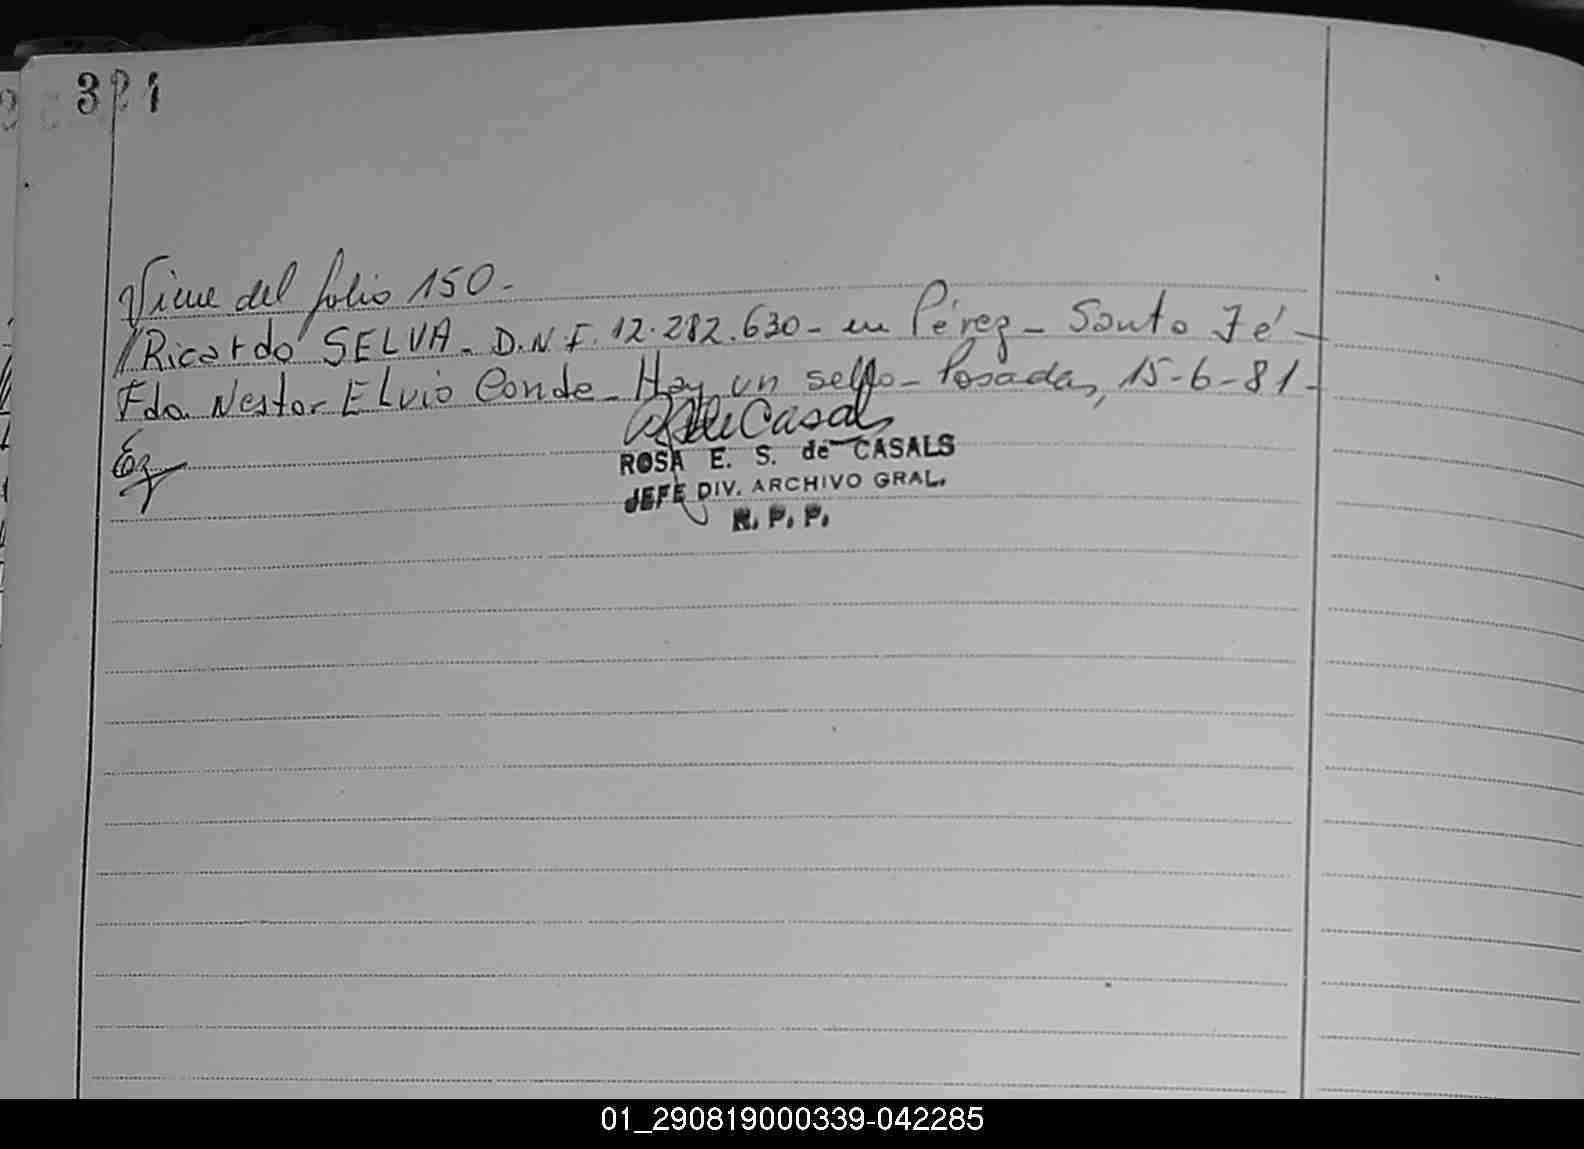 321
Viene del folio 150.-
Ricardo SELVA. D.N.I. 12.282.630- en Pérez- Santa Fé-
Fdo. Nestor Elvio Conde- Hay un sello- Posadas, 15-6-81-
ROSA E. S. de CASALS
JEFE DIV. ARCHIVO GRAL.
R. P. P.
01_290819000339-042285